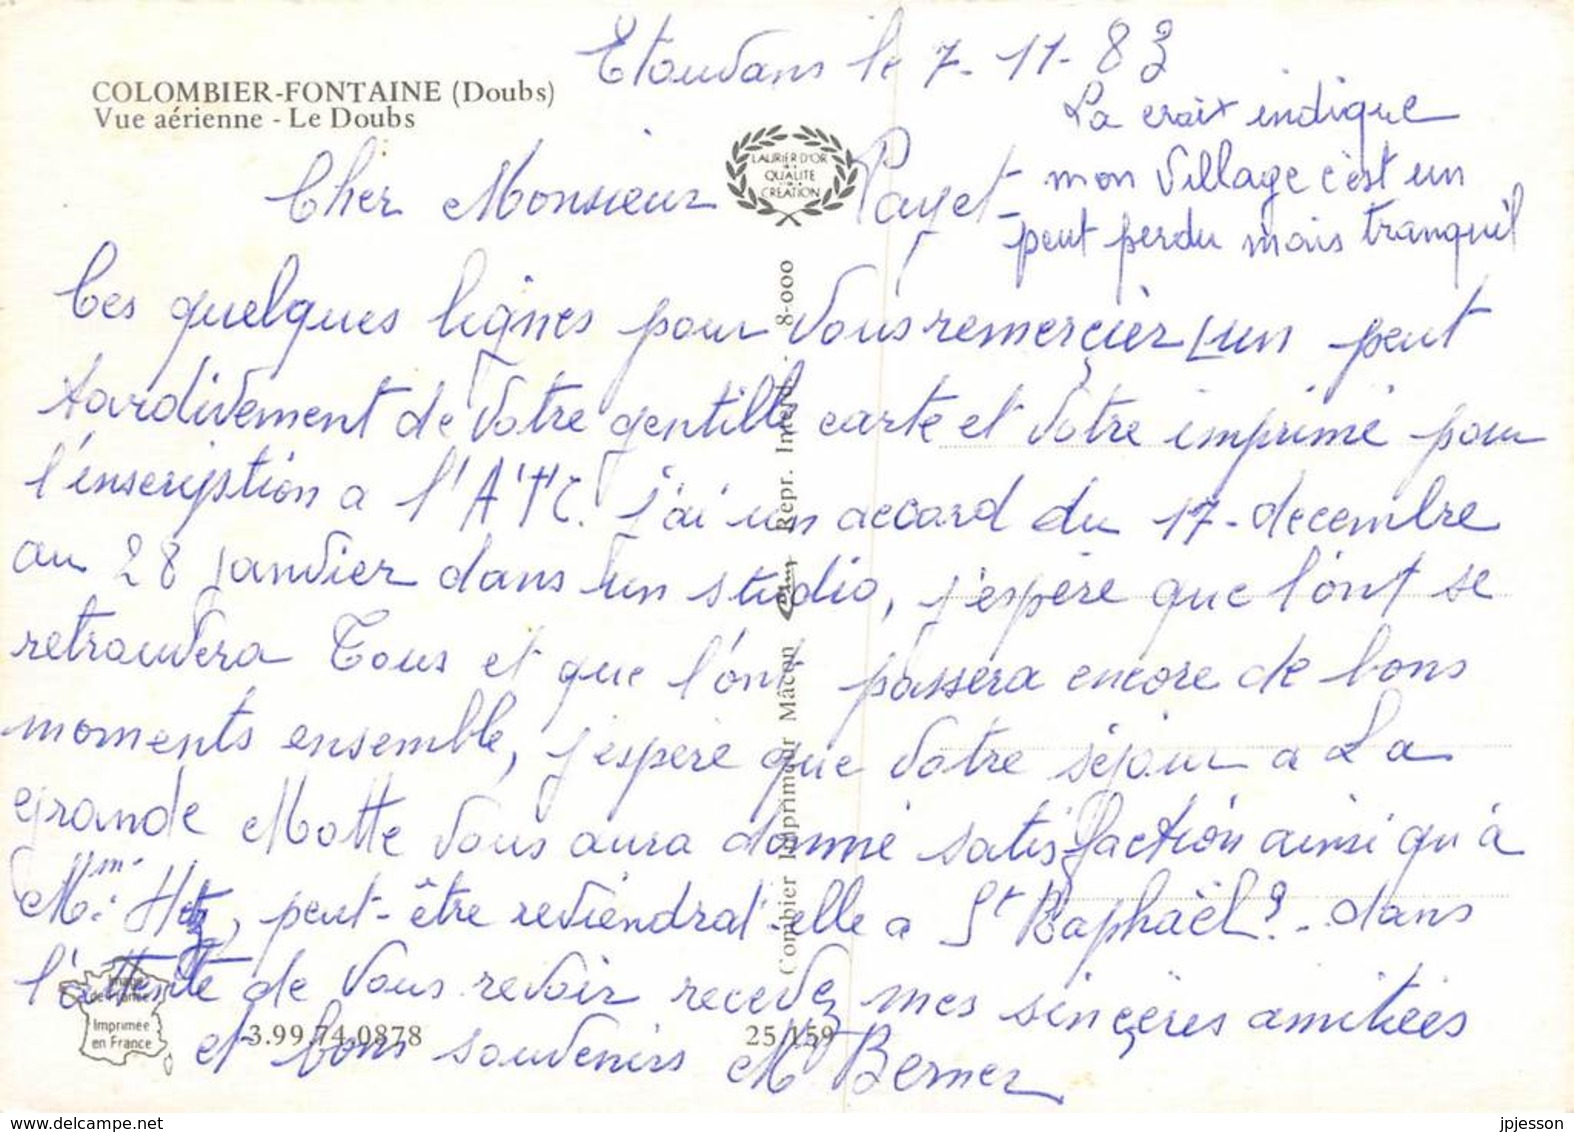 Etouvans le 7-11-83
COLOMBIER-FONTAINE (Doubs)
Vue aérienne - Le Doubs
La croix indique
mon village c'est un
peut perdu mais tranquil
LAURIER D'OR
QUALITE
CREATION
Cher Monsieur Payet
Ces quelques lignes pour vous remerçier un peut
tardivement de votre gentille carte et votre imprimé pour
l'inscription a l'ATC. j'ai un accord du 17-decembre
au 28 janvier dans un studio, j'espère que l'ont se
retrouvera Tous et que l'ont passera encore de bons
moments ensemble, j'espere que votre séjour a La
grande Motte vous aura donné satisfaction ainsi qu'à
Mme Hetz, peut-être reviendrat-elle a St Raphaël? - dans
l'attente de vous revoir recevez mes sinçères amitiées
et bons souvenirs Mr Berner
Combier Imprimeur Mâcon
Repr. Interd. 8-000
Image
de France
Imprimée
en France
3.99.74.0878
25.159
jpjesson